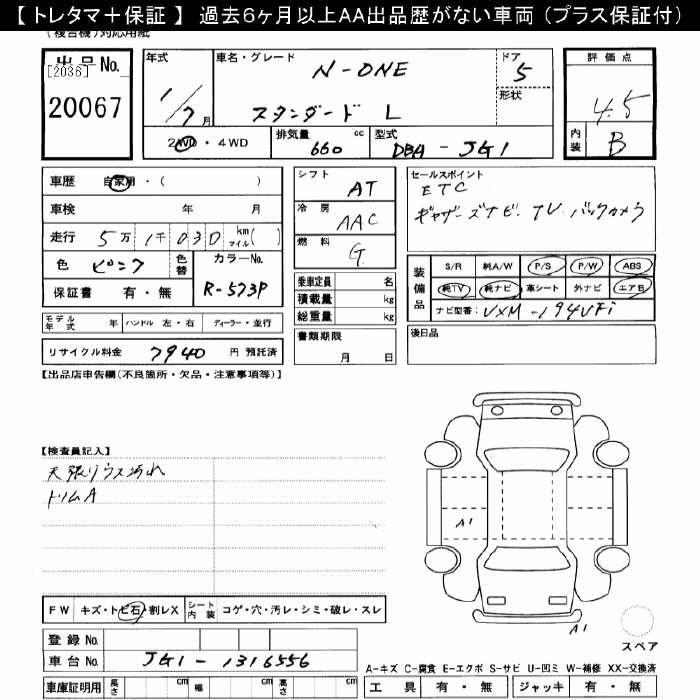 【 トレタマ＋保証 】 過去６ヶ月以上ＡＡ出品歴がない車両（プラス保証付）
(複合機)対応用紙
出品No. [2036] 20067
年式 1/7月
車名・グレード N-ONE
スタンダード L
ドア 5
形状
評価点 4.5
内装 B
2WD・4WD
排気量 660 cc
型式 DBA-JG1
車歴 自家用・( )
車検 年 月
走行 5万1千030 km マイル( )
色 ピンク
色替
カラーNo. R-573P
保証書 有・無
シフト AT
冷房 AAC
燃料 G
乗車定員 名
積載量 kg
総重量 kg
書類期限 月 日
セールスポイント
ETC
ギャザーズナビ. TV. バックカメラ
装備品
S/R 純A/W P/S P/W ABS
純TV 純ナビ 革シート 外ナビ エアB
ナビ型番: VXM-194VFi
後日品
モデル年式 年 ハンドル 左・右 ディーラー・並行
リサイクル料金 7940 円 預託済
【出品店申告欄(不良箇所・欠品・注意事項等)】
【検査員記入】
天張りウス汚れ
トリムA
A1
A1
スペア
FW キズ・トビ石・割レX シート内装 コゲ・穴・汚レ・シミ・破レ・スレ
登録No.
車台No. JG1-1316556
車庫証明用 長さ cm 幅 cm 高さ cm
A-キズ C-腐食 E-エクボ S-サビ U-凹ミ W-補修 XX-交換済
工具 有・無 ジャッキ 有・無